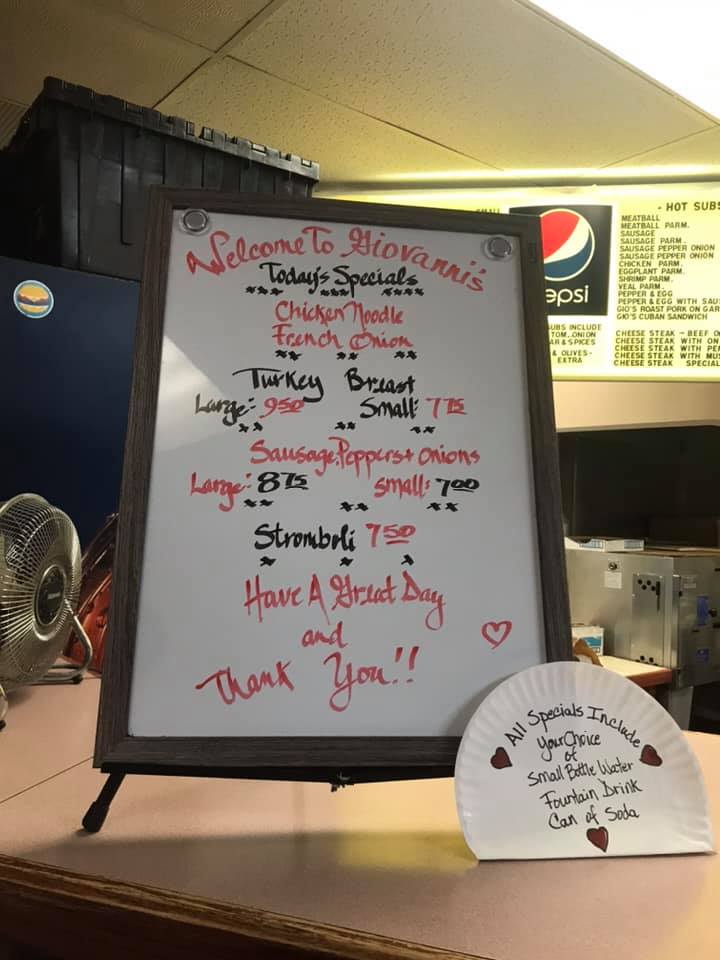 Welcome To Giovanni's
Today's Specials
Chicken Noodle
French Onion
Turkey Breast
Large: 9.50 Small: 7.75
Sausage, Peppers + Onions
Large: 8.75 Small: 7.00
Stromboli 7.50
Have A Great Day
and
Thank You!!
All Specials Include
Your Choice
of
Small Bottle Water
Fountain Drink
Can of Soda
epsi
- HOT SUBS
MEATBALL
MEATBALL PARM.
SAUSAGE
SAUSAGE PARM.
SAUSAGE PEPPER ONION
SAUSAGE PEPPER ONION
CHICKEN PARM.
EGGPLANT PARM.
SHRIMP PARM.
VEAL PARM.
PEPPER & EGG
PEPPER & EGG WITH SAU
GIO'S ROAST PORK ON GAR
GIO'S CUBAN SANDWICH
CHEESE STEAK - BEEF O
CHEESE STEAK WITH ON
CHEESE STEAK WITH PE
CHEESE STEAK WITH MU
CHEESE STEAK SPECIAL
UBS INCLUDE
TOM, ONION
AR & SPICES
& OLIVES -
EXTRA